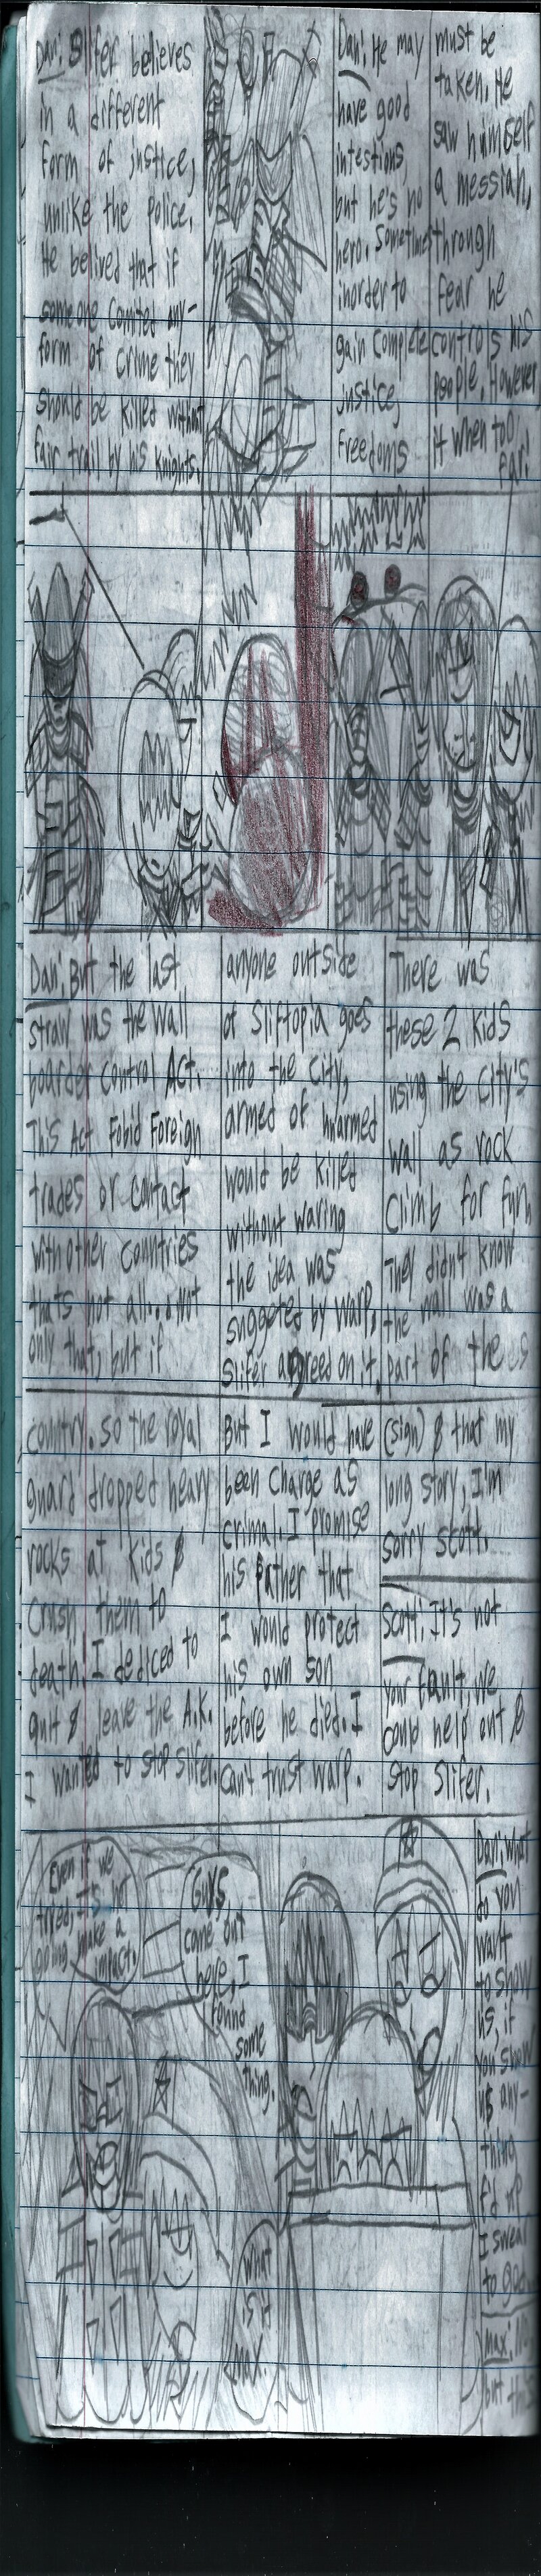 Dan: Slifer believes
in a different
form of justice,
unlike the police.
He belived that if
someone comited any-
form of crime they
should be killed without
fair trail by his knights.
Dan: He may
have good
intestions,
but he's no
hero. Sometimes
inorder to
gain complete
justice,
freedoms
must be
taken. He
saw himself
a messiah,
through
fear he
controls his
people. However
it when too
far!
Dan: But the last
straw was the wall
boarder control Act.
This Act Fobid Foreign
trades or contact
with other countries
thats not all... Not
only that, but if
anyone outside
of Sliftopia goes
into the city,
armed of
would be killed
without waring
the idea was
suggered by warp,
Slifer agreed on it.
There was
these 2 kids
using the city's
wall as rock
Climb for fun,
They didnt know
the wall was a
part of the
country. so the royal
guard dropped heavy
rocks at kids &
Crush them to
death! I dediced to
quit & leave the A.K.
I wanted to stop Slifer.
But I would have
been charge as
crimal. I promise
his father that
I would protect
his own son
before he died. I
can't trust warp.
(sign) & that my
long story, I'm
sorry scott.
Scott: It's not
your fault, we
could help out &
stop Slifer.
Even if we
tried, not
going make a
impact.
Guys
come out
here, I
found
some
thing.
what
is it
max.
Dan: what
do you
want
to show
us, if
you show
us any-
thing
I swear
to
Max:
but